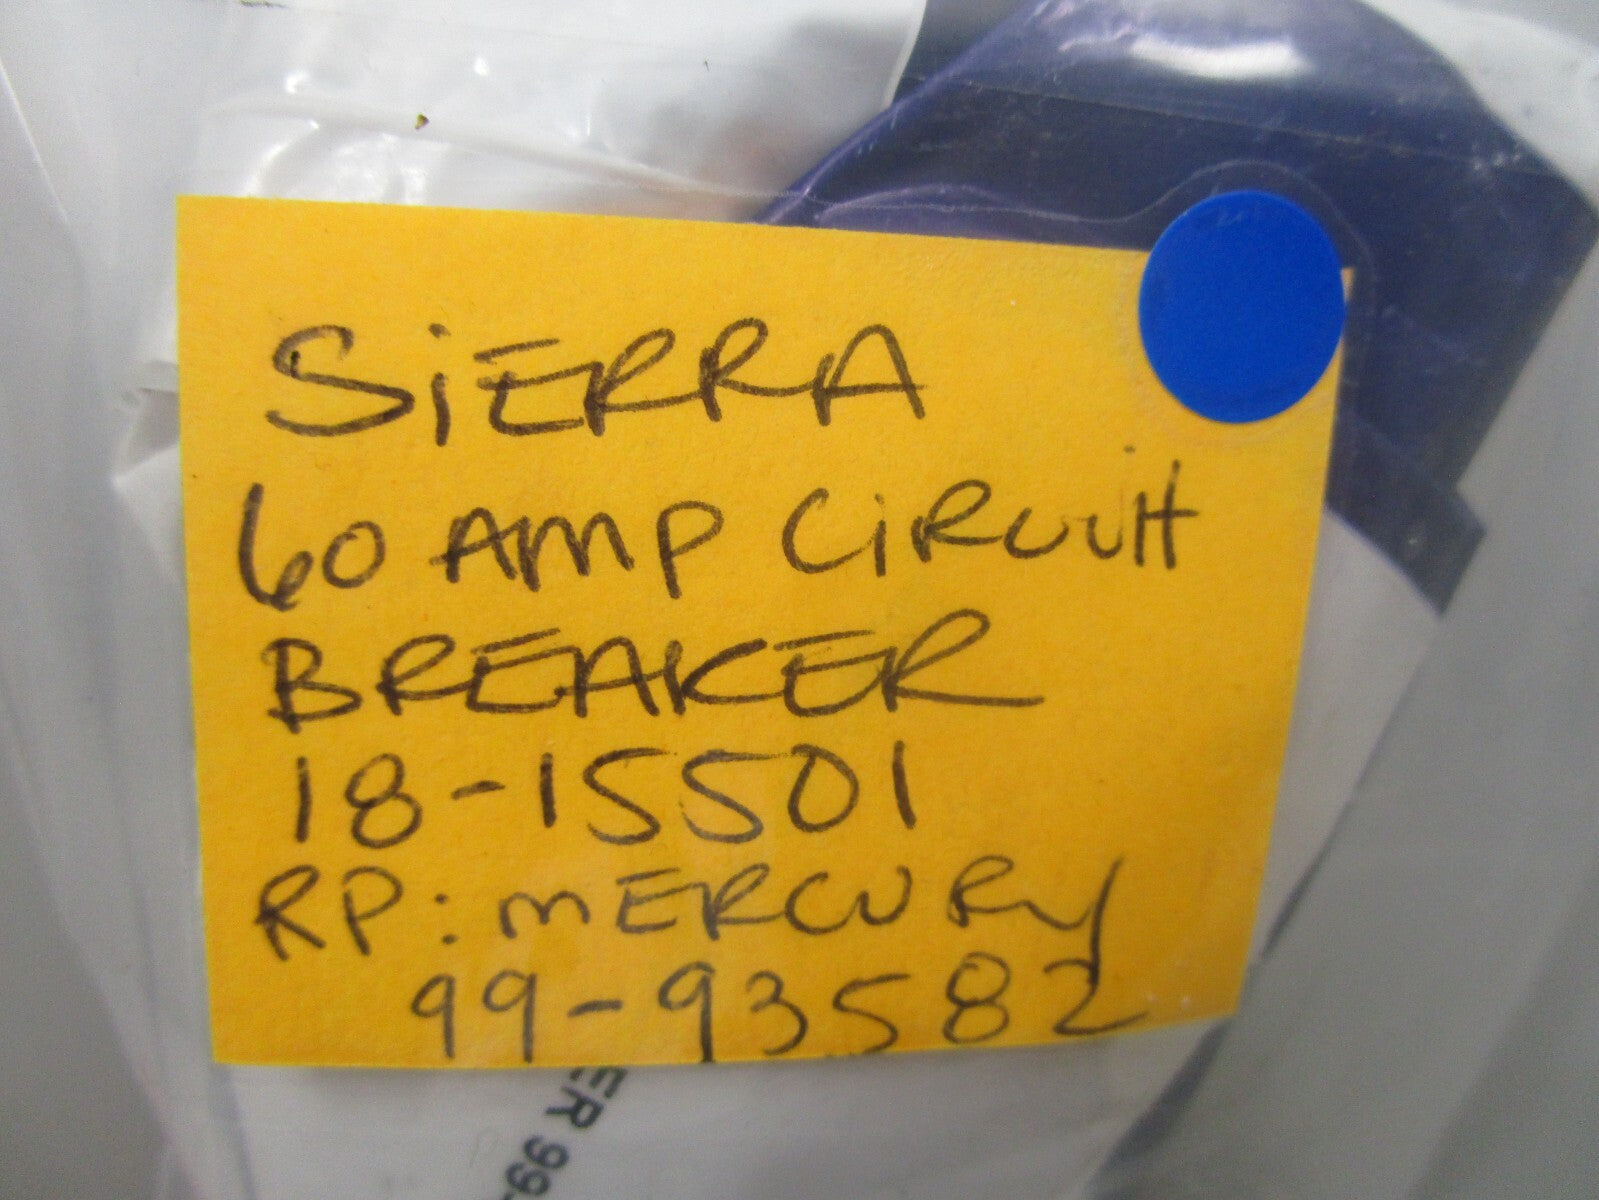 SiERRA
60 AMP CiRCUiT
BREAKER
18-15501
RP: mERCURY
99-93582
ER 99-